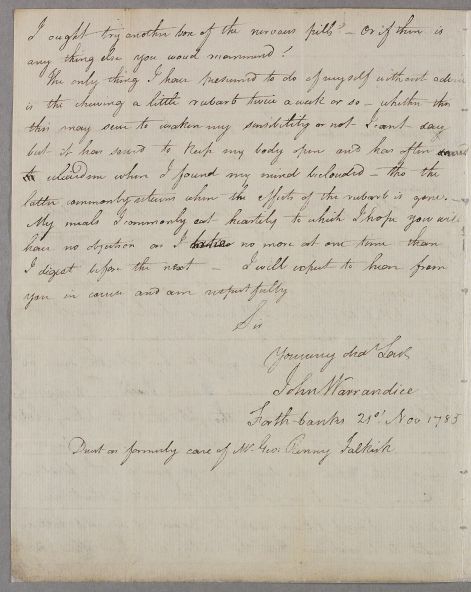 I ought try another box of the nervous pills? – Or if there is
any thing else you woud recommend?
The only thing I have presumed to do of myself without advice
is the chewing a little rubarb twice a week or so – whither this
this may serve to weaken my sensibility or not I cant say
but it has served to keep my body open and has often
me when I found my mind beclouded – tho the
latter commonly returns when the effects of the rubarb is gone. –
My meals I commonly eat heartily to which I hope you will
have no objection as I no more at one time than
I digest before the next – I will expect to hear from
you in course and am respectfully
Sir
Your very obdt Servt
John Warrandice
Forth-banks 21st Nov 1785
Direct as formerly care of Mr Geo. Renny Falkirk